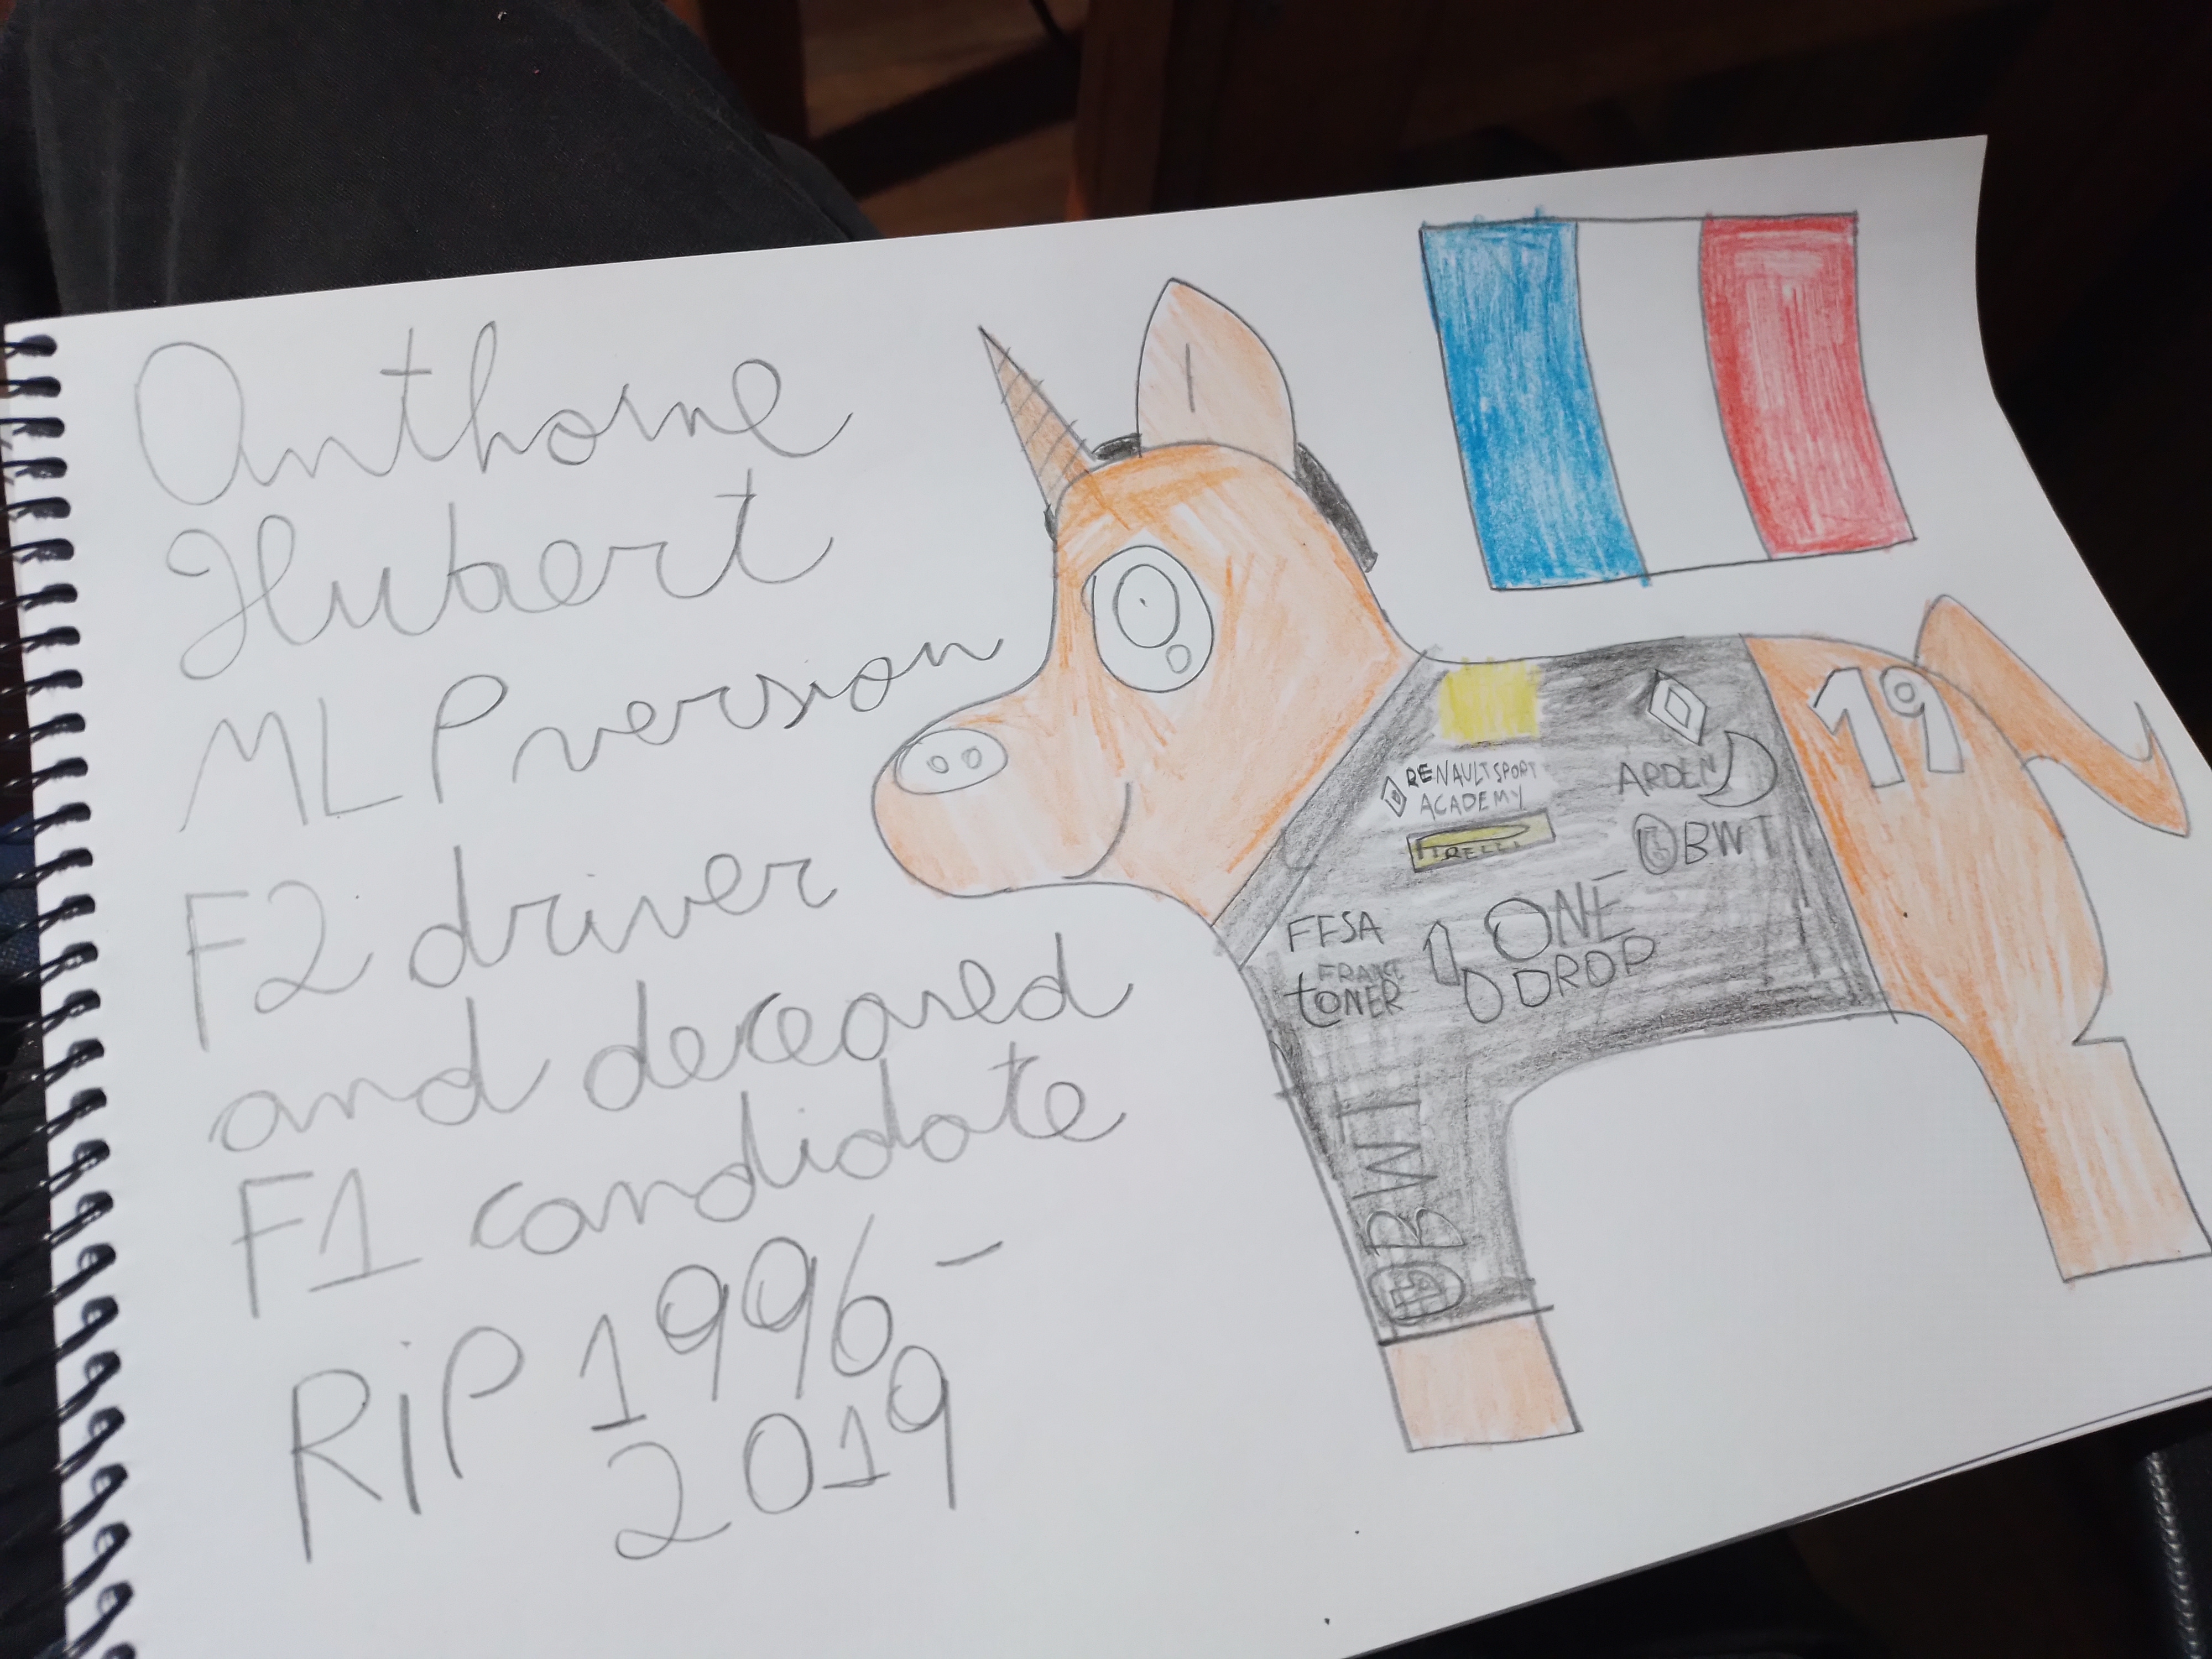 Anthoine
Hubert
MLP version
F2 driver
and deceased
F1 candidate
RiP 1996-
2019
19
RENAULT SPORT
ACADEMY
PIRELLI
ARDEN
BWT
FFSA
FRANCE
tONER
ONE
DROP
BWT